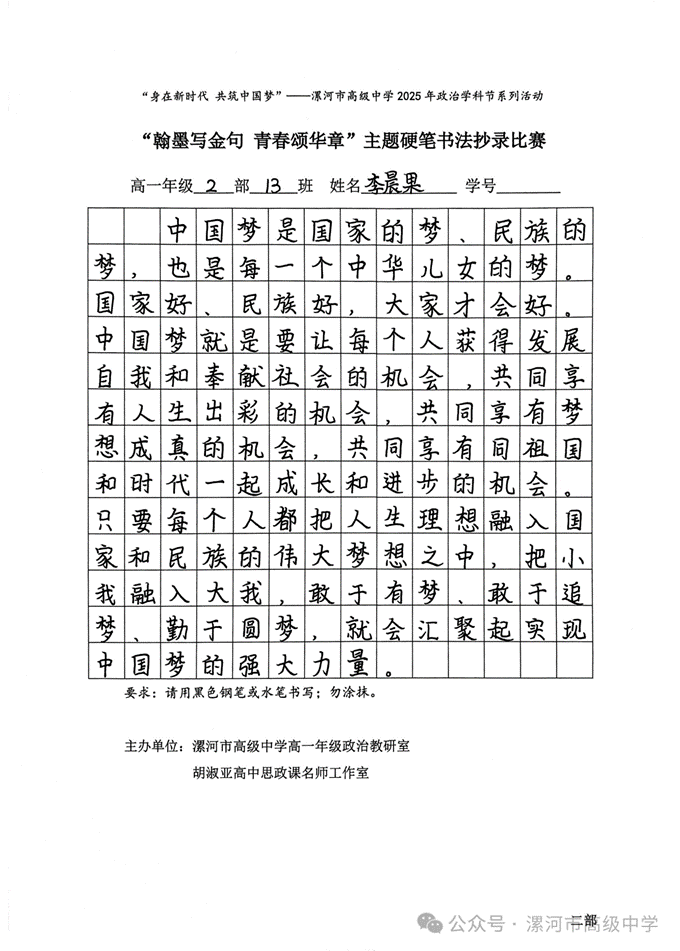 “身在新时代 共筑中国梦”——漯河市高级中学2025年政治学科节系列活动
“翰墨写金句 青春颂华章”主题硬笔书法抄录比赛
高一年级 2 部 13 班 姓名 李晨果 学号
中国梦是国家的梦、民族的
梦，也是每一个中华儿女的梦。
国家好、民族好，大家才会好。
中国梦就是要让每个人获得发展
自我和奉献社会的机会，共同享
有人生出彩的机会，共同享有梦
想成真的机会，共同享有同祖国
和时代一起成长和进步的机会。
只要每个人都把人生理想融入国
家和民族的伟大梦想之中，把小
我融入大我，敢于有梦、敢于追
梦、勤于圆梦，就会汇聚起实现
中国梦的强大力量。
要求：请用黑色钢笔或水笔书写；勿涂抹。
主办单位：漯河市高级中学高一年级政治教研室
胡淑亚高中思政课名师工作室
二部
公众号·漯河市高级中学